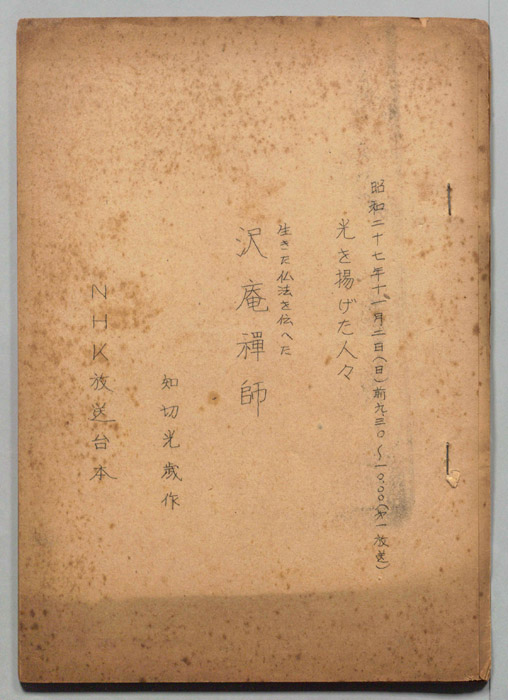 昭和二十七年十一月二日(日)前九、三〇〜一〇、〇〇(第一放送)
光を揚げた人々
生きた仏法を伝へた
沢庵禅師
知切光歳作
NHK放送台本